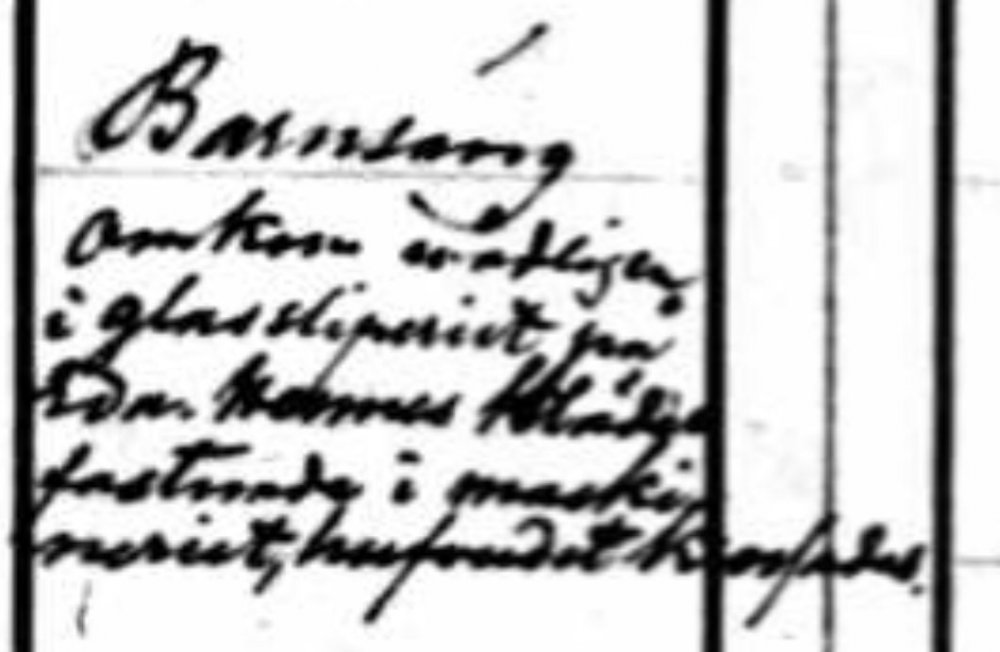 Barnsäng
Omkom wådligen
i glassliperiet på
Eda. Hannes kläder
fastnade i maski
neriet, hufvudet krossades.